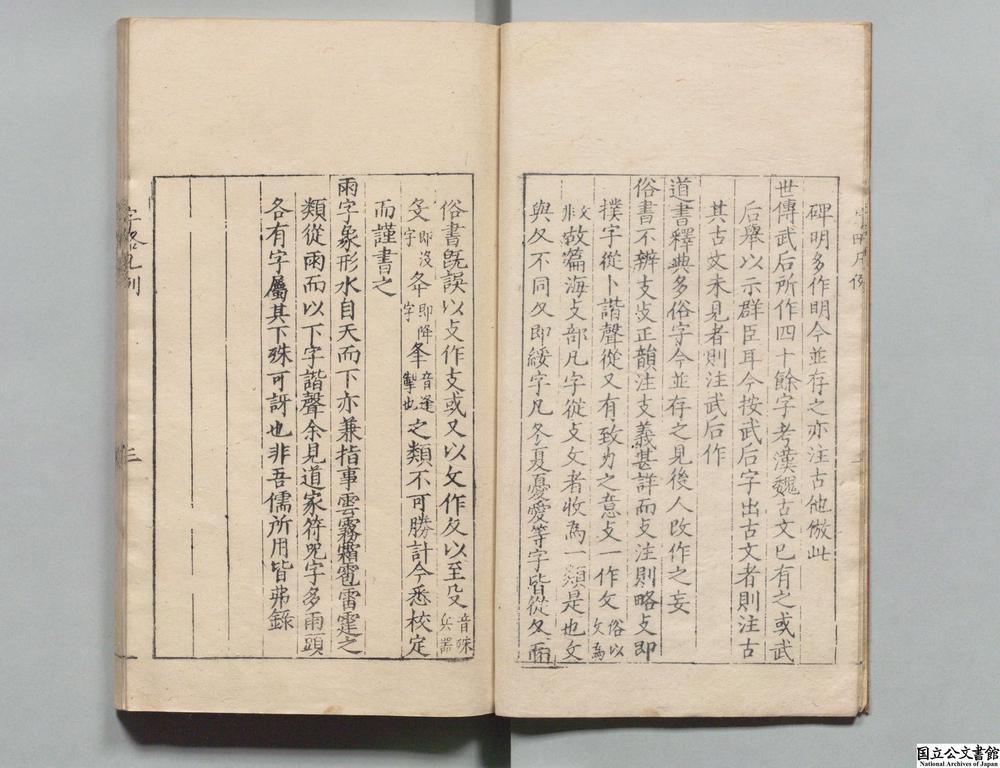 碑明多作明今並存之亦注古他倣此
世傳武后所作四十餘字考漢魏古文已有之或武
后舉以示群臣耳今按武后字出古文者則注古
其古文未見者則注武后作
道書釋典多俗字今並存之見後人改作之妄
俗書不辨支攴正韻注支義甚詳而攴注則略攴即
撲字從卜諧聲從又有致力之意攴一作攵俗以攵為
文非故篇海攴部凡字從攴攵者收為一類是也攵
與夂不同夂即綏字凡冬夏憂愛等字皆從夂而
俗書既誤以攴作支或又以攵作夂以至殳音殊兵器
𠬛即沒字夅即降字夆音逢掣也之類不可勝計今悉校定
而謹書之
雨字象形水自天而下亦兼指事雲霧霜雹雷霆之
類從雨而以下字諧聲余見道家符咒字多雨頭
各有字屬其下殊可訝也非吾儒所用皆弗錄
三
国立公文書館
National Archives of Japan